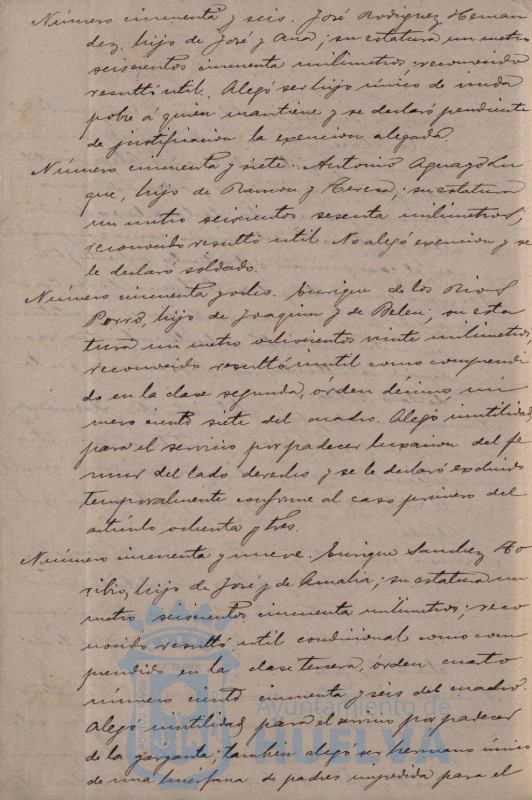 Número cincuenta y seis. José Rodriguez Hernan
dez, hijo de José y Ana; su estatura un metro
seiscientos cincuenta milimetros; reconocido
resultó util. Alegó ser hijo único de viuda
pobre á quien mantiene y se declaró pendiente
de justificacion la exencion alegada
Número cincuenta y siete. Antonio Aguayo Lu
que, hijo de Ramon y Teresa; su estatura
un metro seiscientos sesenta milimetros;
reconocido resultó util. No alegó exencion y se
le declaró soldado.
Número cincuenta y ocho. Enrique de los Rios
Porro, hijo de Joaquin y de Belen; su esta
tura un metro ochocientos veinte milimetros,
reconocido resultó inutil como comprendi
do en la clase segunda, órden décimo, nú
mero ciento siete del cuadro. Alegó inutilidad
para el servicio por padecer luxacion del fe
mur del lado derecho y se le declaró excluido
temporalmente conforme al caso primero del
artículo ochenta y tres.
Número cincuenta y nueve. Enrique Sanchez To
ribio, hijo de José y de Amalia; su estatura un
metro seiscientos cincuenta milimetros; reco
nocido resultó util condicional como com
prendido en la clase tercera, órden cuarto
número ciento cincuenta y seis del cuadro.
Alegó inutilidad para el servicio por padecer
de la garganta; tambien alegó ser hermano único
de una huerfana de padres impedida para el
Ayuntamiento de
HUELVA